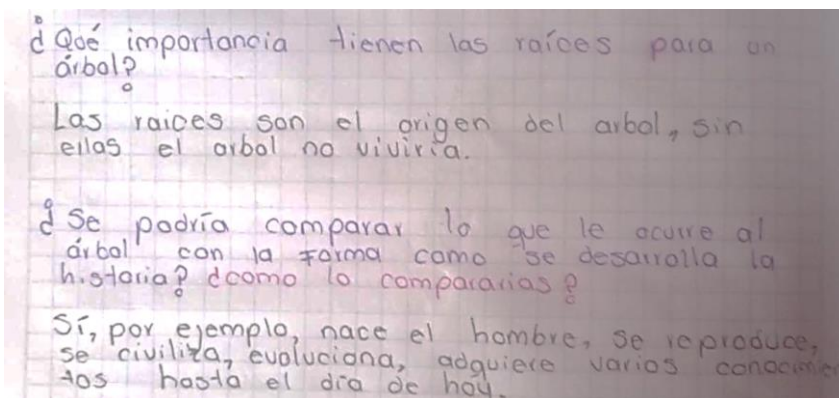 ¿Qué importancia tienen las raíces para un
árbol?
Las raices son el origen del arbol, sin
ellas el arbol no viviría.
¿Se podría comparar lo que le ocurre al
árbol con la forma como se desarrolla la
historia? ¿como lo compararias?
Sí, por ejemplo, nace el hombre, se reproduce,
se civiliza, evoluciona, adquiere varios conocimien
tos hasta el día de hoy.